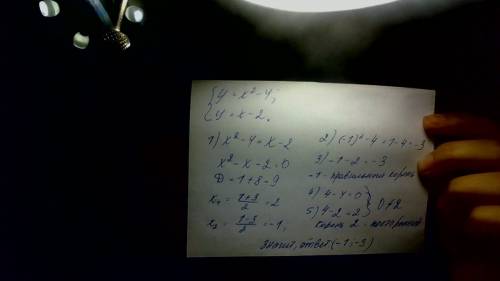 { y = x² - 4;
{ y = x - 2.
1) x² - 4 = x - 2
x² - x - 2 = 0
D = 1 + 8 = 9
x₁ = (1+3)/2 = 2
x₂ = (1-3)/2 = -1;
2) (-1)² - 4 = 1 - 4 = -3
3) -1 - 2 = -3
-1 - правильный корень
4) 4 - 4 = 0 }
5) 4 - 2 = 2 } 0 ≠ 2
корень 2 - посторонний
значит, ответ (-1; -3)